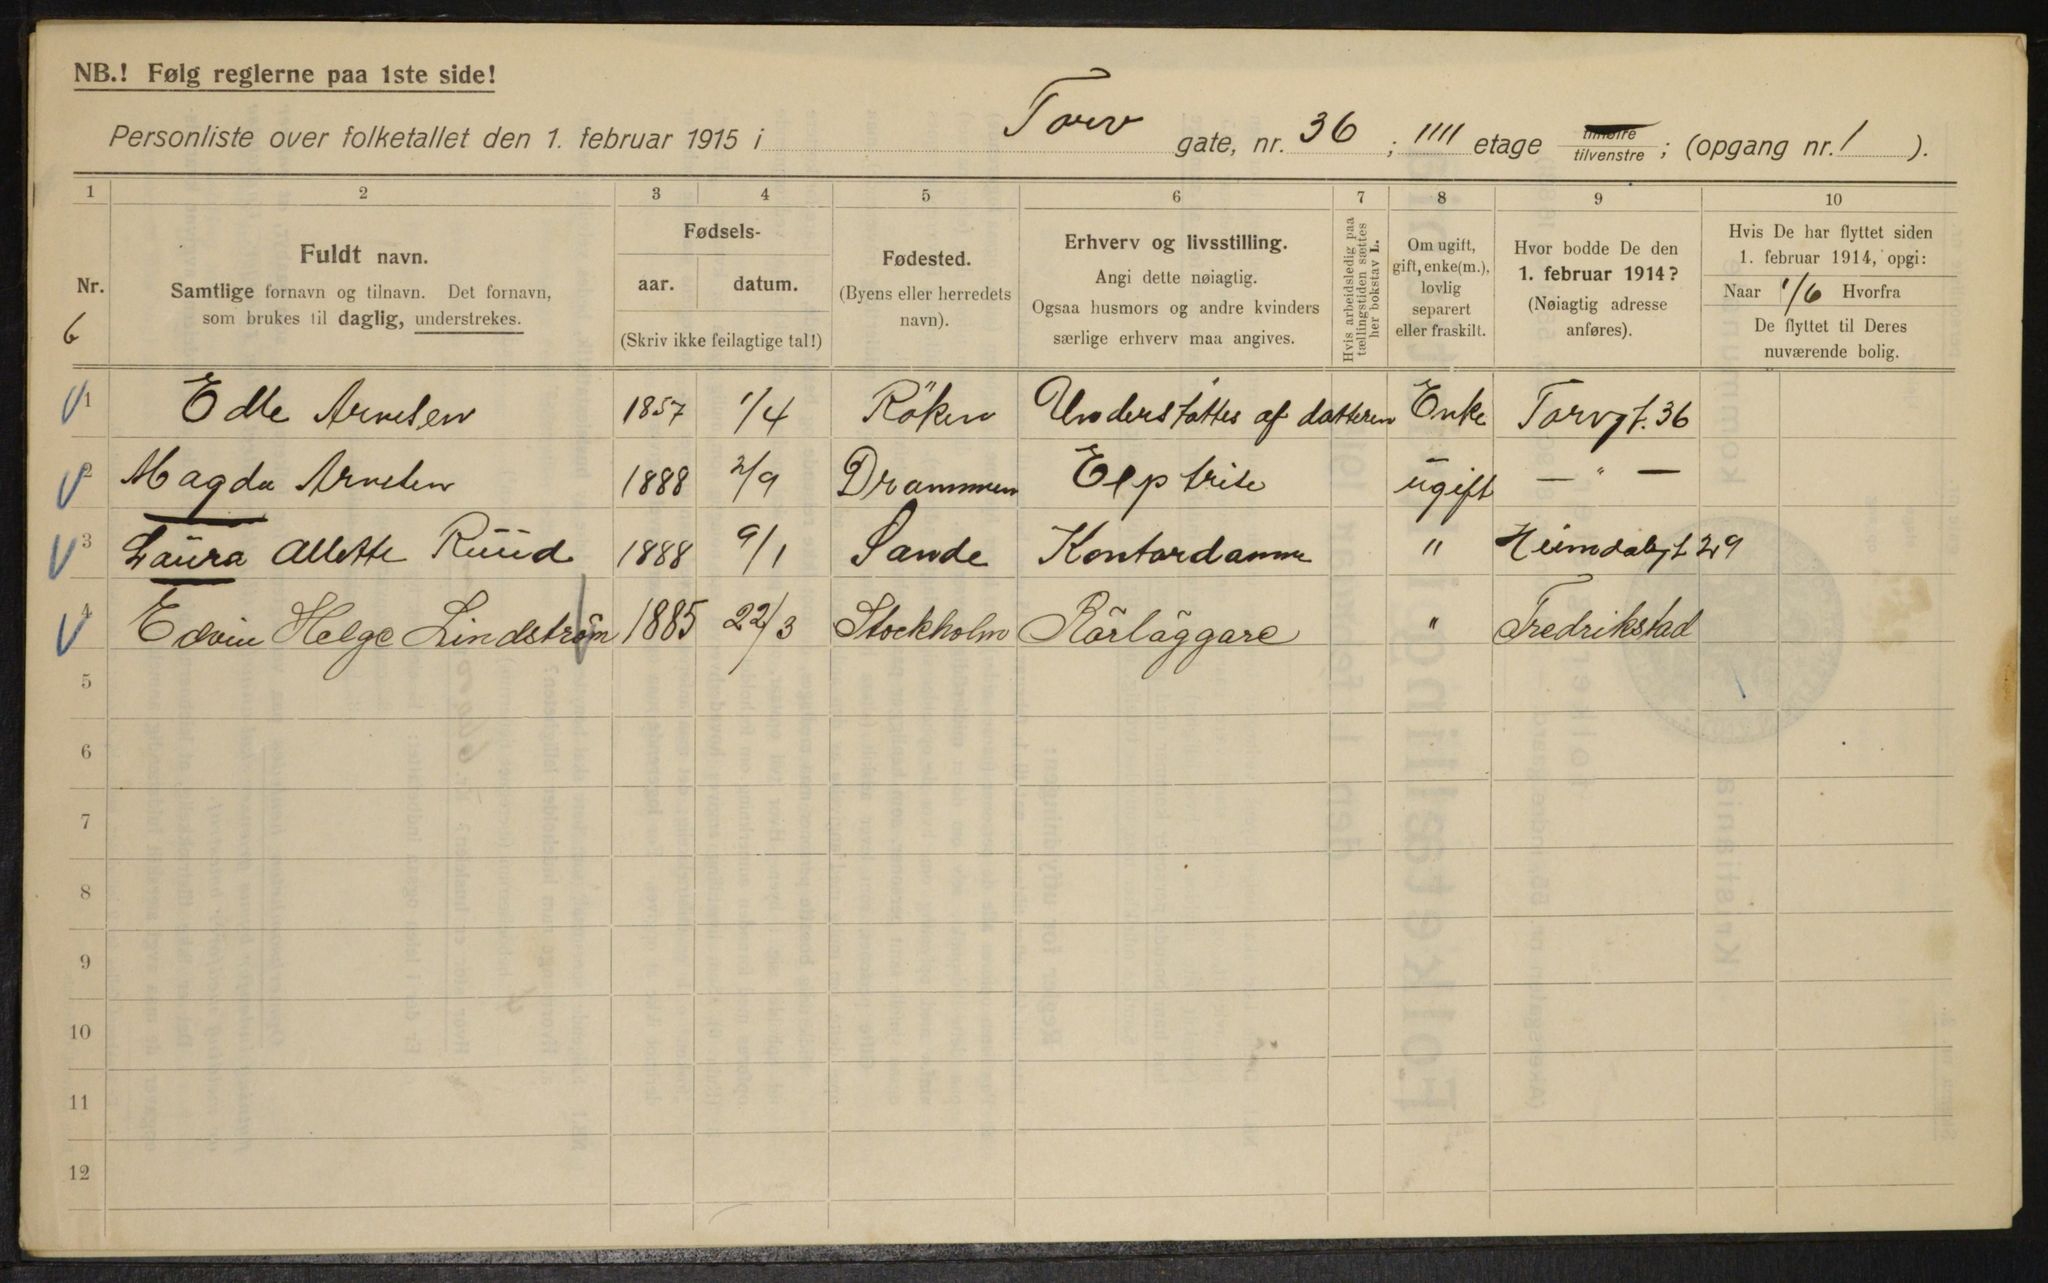 NB.! Følg reglerne paa 1ste side!
Personliste over folketallet den 1. februar 1915 i Torv gate, nr. 36 ; IIII etage tilhøire tilvenstre ; (opgang nr. 1 ).
1 2 3 4 5 6 7 8 9 10
Nr.
6
Fuldt navn.
Samtlige fornavn og tilnavn. Det fornavn,
som brukes til daglig, understrekes.
Fødsels-
aar. datum.
(Skriv ikke feilagtige tal!)
Fødested.
(Byens eller herredets
navn).
Erhverv og livsstilling.
Angi dette nøiagtig.
Ogsaa husmors og andre kvinders
særlige erhverv maa angives.
Hvis arbeidsledig paa
tællingstiden sættes
her bokstav L.
Om ugift,
gift, enke(m.),
lovlig
separert
eller fraskilt.
Hvor bodde De den
1. februar 1914?
(Nøiagtig adresse
anføres).
Hvis De har flyttet siden
1. februar 1914, opgi:
Naar 1/6 Hvorfra
De flyttet til Deres
nuværende bolig.
1 Edle Arnesen 1857 1/4 Röken Understøttes af datteren Enke Torvgt. 36
2 Magda Arnesen 1888 2/9 Drammen ugift — " —
3 Laura Allette Ruud 1888 9/1 Sande Kontordamme " Heimdalsgt 29
4 Edvin Helge Lindström 1885 22/3 Stockholm Rörläggare " Fredrikstad
5
6
7
8
9
10
11
12